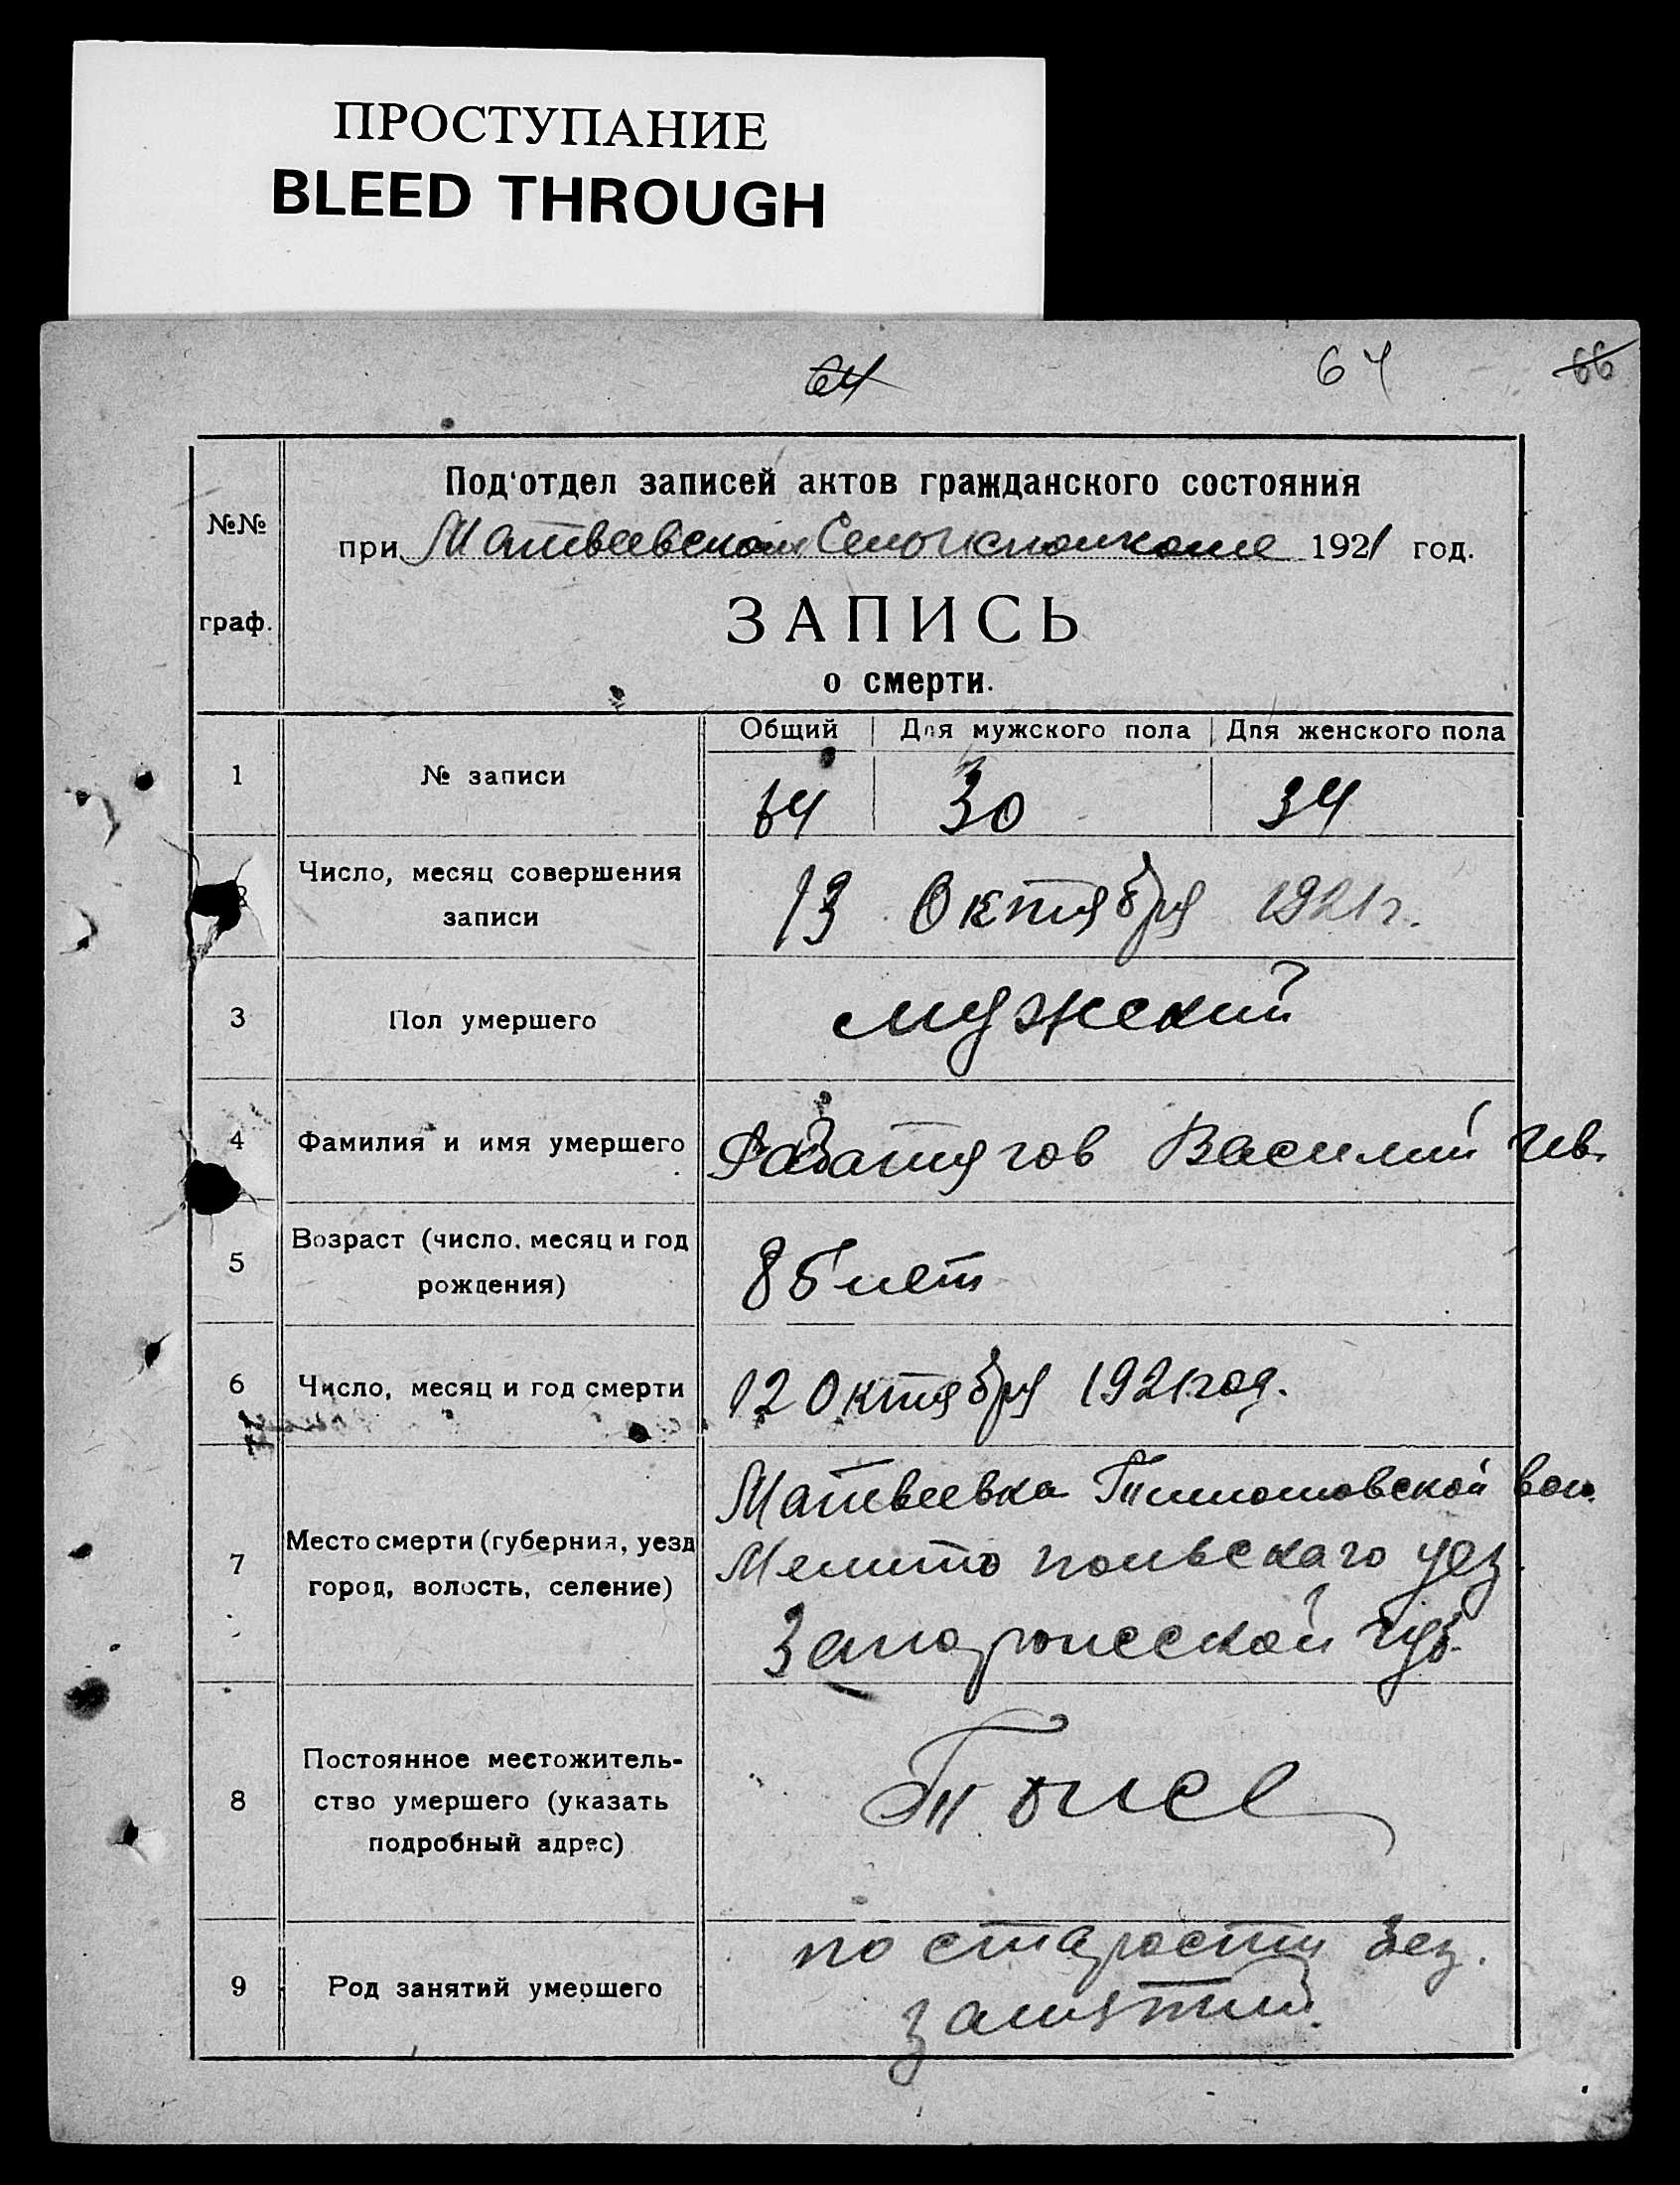 ПРОСТУПАНИЕ
BLEED THROUGH
64 64 66
Под'отдел записей актов гражданского состояния
№№
при Матвеевском Сельисполкоме 1921 год.
граф.
ЗАПИСЬ
о смерти.
Общий Для мужского пола Для женского пола
1 № записи 64 30 34
2 Число, месяц совершения
записи 13 Октября 1921 г.
3 Пол умершего мужский
4 Фамилия и имя умершего Василий Ив.
5 Возраст (число, месяц и год
рождения) 85 лет
6 Число, месяц и год смерти 12 Октября 1921 год.
Матвеевка вол.
7 Место смерти (губерния, уезд
город, волость, селение) Мелитопольскаго уез.
губ.
8 Постоянное местожитель-
ство умершего (указать
подробный адрес)
по старости без.
9 Род занятий умершего
занятий.